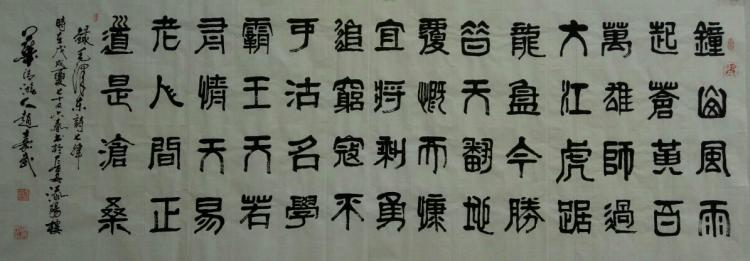 鐘山風雨
起蒼黃百
萬雄師過
大江虎踞
龍盤今勝
昔天翻地
覆慨而慷
宜將剩勇
追窮寇不
可沽名學
霸王天若
有情天易
老人間正
道是滄桑
錄毛澤東詩七律
時在戊戌夏七十六書於陽樓
人趙壽武